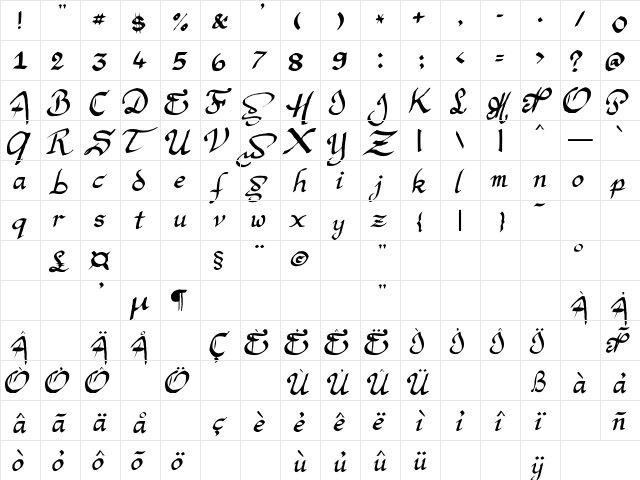 ! " # $ % & ' ( ) * + , - . / 0
1 2 3 4 5 6 7 8 9 : ; < = > ? @
A B C D E F G H I J K L M N O P
Q R S T U V W X Y Z [ \ ] ^ — `
a b c d e f g h i j k l m n o p
q r s t u v w x y z { | } ~
£ ¤ § ¨ © " °
' µ ¶ " À Á
 Ä Å Ç È É Ê Ë Ì Í Î Ï Ñ
Ò Ó Ô Ö Ù Ú Û Ü ß à á
â ã ä å ç è é ê ë ì í î ï ñ
ò ó ô õ ö ù ú û ü ÿ